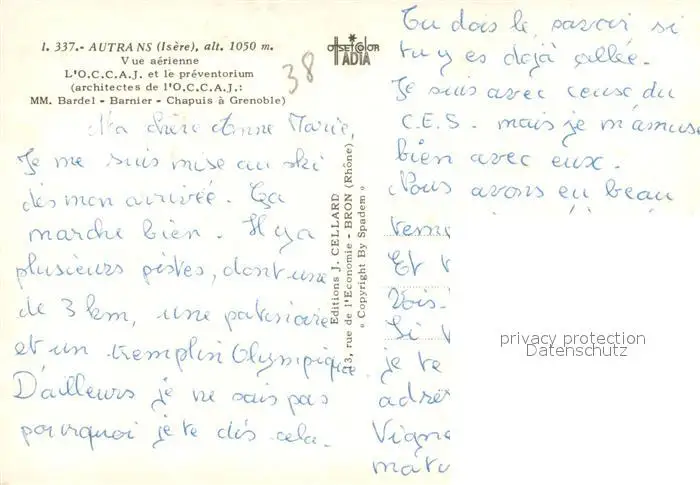 1. 337.- AUTRANS (Isère), alt. 1050 m.
Vue aérienne
L'O.C.C.A.J. et le préventorium
(architectes de l'O.C.C.A.J.:
MM. Bardel - Barnier - Chapuis à Grenoble)
38
OFFSET COLOR
IADIA
Ma chère Anne Marie,
Je me suis mise au ski
dès mon arrivée. Ça
marche bien. Il y a
plusieurs pistes, dont une
de 3 km, une patinoire
et un tremplin Olympique
D'ailleurs je ne sais pas
pourquoi je te dis cela.
Editions J. CELLARD
13, rue de l'Economie - BRON (Rhône)
« Copyright By Spadem »
Tu dois le savoir si
tu y es dejà allée.
Je suis avec ceux du
C.E.S. mais je m'amuse
bien avec eux.
Nous avons eu beau
tem
Et
Vois-
Si
je te
adre
Vign
matu
privacy protection
Datenschutz